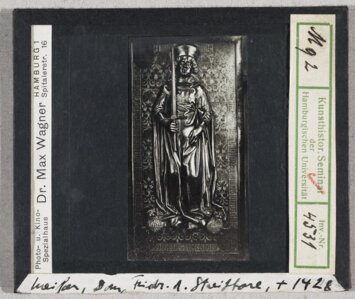 Photo- u. Kino-
Spezialhaus
Dr. Max Wagner
HAMBURG 1
Spitalerstr. 16
Mg 2
Kunsthistor. Seminar
der
Hamburgischen Universität
Inv.-Nr.
4531
Meißen, Dom, Fridr. d. Streitbare, † 1428